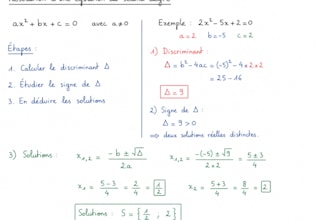 Résolution d'une équation du second degré
ax² + bx + c = 0 avec a ≠ 0
Étapes :
1. Calculer le discriminant Δ
2. Étudier le signe de Δ
3. En déduire les solutions
Exemple : 2x² - 5x + 2 = 0
a = 2 b = -5 c = 2
1) Discriminant :
Δ = b² - 4ac = (-5)² - 4×2×2
= 25 - 16
Δ = 9
2) Signe de Δ :
Δ = 9 > 0
⟹ deux solutions réelles distinctes.
3) Solutions : x₁,₂ = (-b ± √Δ) / 2a x₁,₂ = (-(-5) ± √9) / 2×2 = (5 ± 3) / 4
x₁ = (5 - 3) / 4 = 2/4 = 1/2 x₂ = (5 + 3) / 4 = 8/4 = 2
Solutions : S = { 1/2 ; 2 }